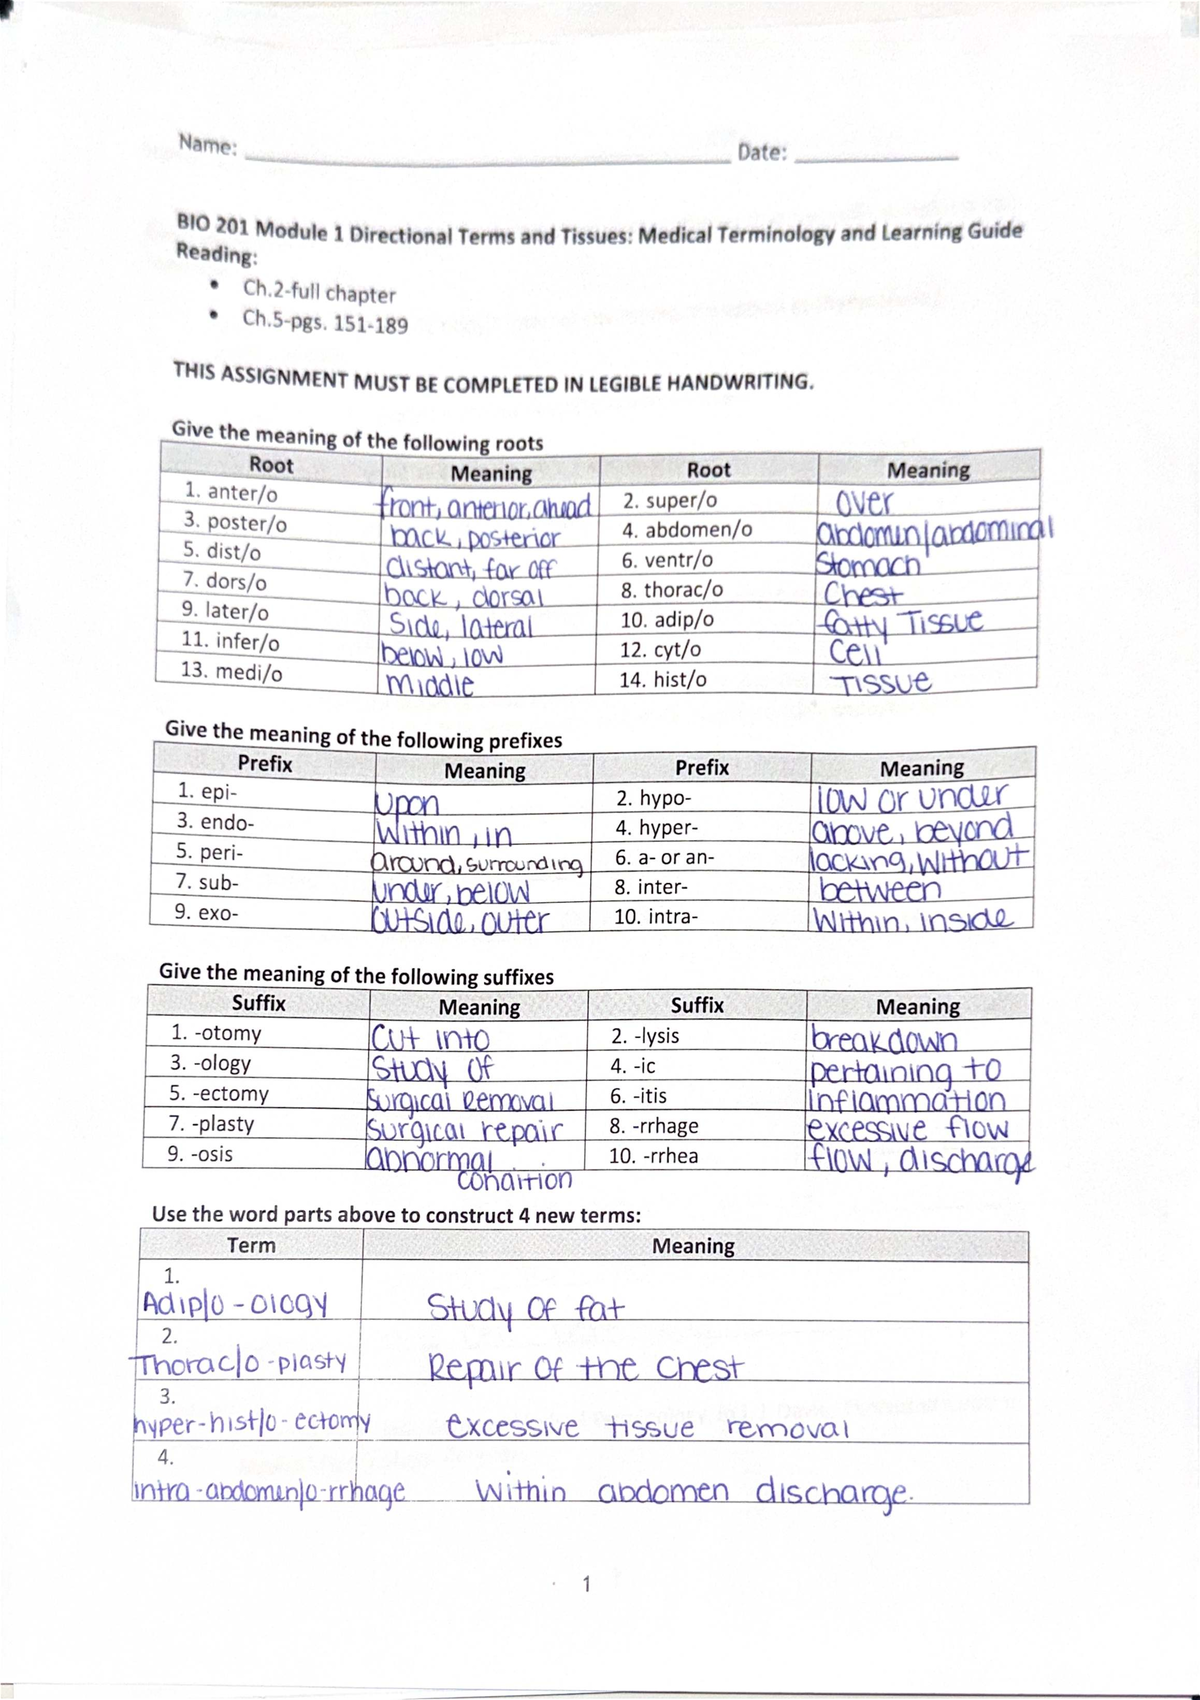 Name: Date:
BIO 201 Module 1 Directional Terms and Tissues: Medical Terminology and Learning Guide
Reading:
• Ch.2-full chapter
• Ch.5-pgs. 151-189
THIS ASSIGNMENT MUST BE COMPLETED IN LEGIBLE HANDWRITING.
Give the meaning of the following roots
Root Meaning Root Meaning
1. anter/o front, anterior, ahead 2. super/o over
3. poster/o back, posterior 4. abdomen/o abdomen/abdominal
5. dist/o distant, far off 6. ventr/o Stomach
7. dors/o back, dorsal 8. thorac/o Chest
9. later/o Side, lateral 10. adip/o fatty Tissue
11. infer/o below, low 12. cyt/o Cell
13. medi/o Middle 14. hist/o Tissue
Give the meaning of the following prefixes
Prefix Meaning Prefix Meaning
1. epi- Upon 2. hypo- low or under
3. endo- Within, in 4. hyper- above, beyond
5. peri- around, surrounding 6. a- or an- lacking, Without
7. sub- under, below 8. inter- between
9. exo- outside, outer 10. intra- Within, inside
Give the meaning of the following suffixes
Suffix Meaning Suffix Meaning
1. -otomy Cut into 2. -lysis breakdown
3. -ology Study of 4. -ic pertaining to
5. -ectomy Surgical Removal 6. -itis inflammation
7. -plasty Surgical repair 8. -rrhage excessive flow
9. -osis abnormal 10. -rrhea flow, discharge
condition
Use the word parts above to construct 4 new terms:
Term Meaning
1.
Adip/o - ology Study of fat
2.
Thorac/o -plasty Repair of the Chest
3.
hyper-hist/o-ectomy excessive tissue removal
4.
intra-abdomen/o-rrhage Within abdomen discharge.
1